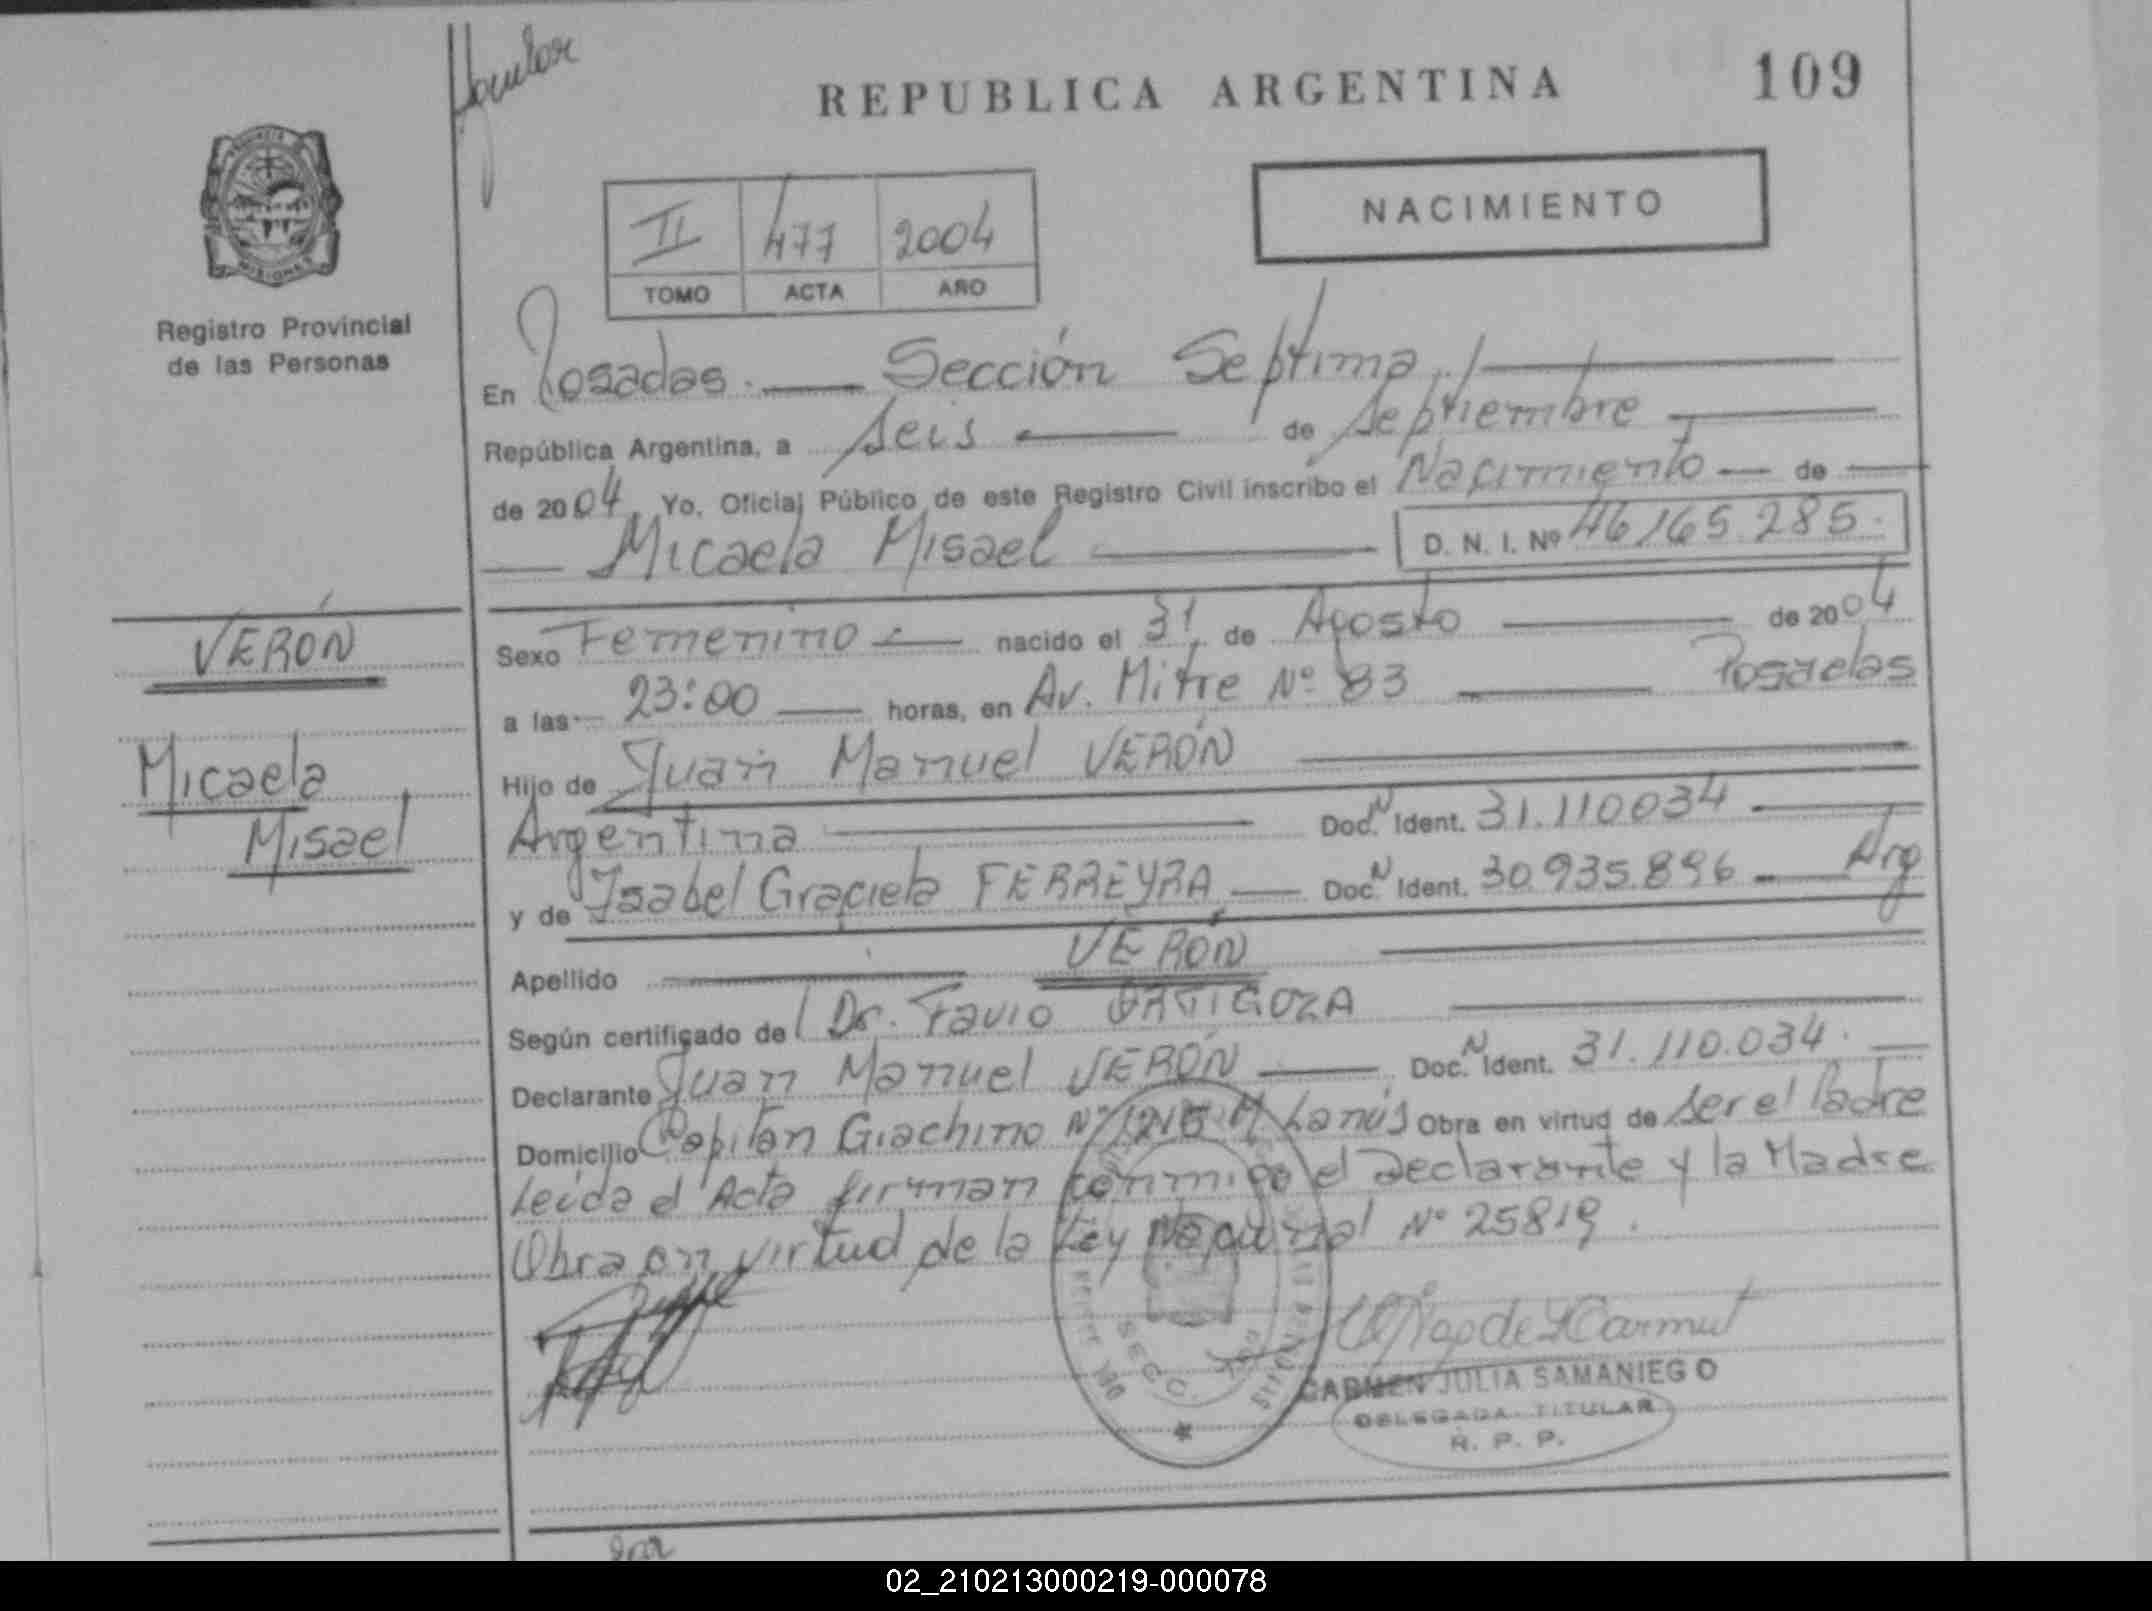 REPUBLICA ARGENTINA
109
NACIMIENTO
II 477 2004
TOMO ACTA AÑO
MISIONES
Registro Provincial
de las Personas
En Posadas. Sección Septima
República Argentina, a seis de septiembre
de 2004 Yo, Oficial Público de este Registro Civil inscribo el Nacimiento de
Micaela Misael D. N. I. Nº 46165.285.
VERÓN
Micaela
Misael
Sexo Femenino nacido el 31 de Agosto de 2004
a las 23:00 horas, en Av. Mitre Nº 83 Posadas
Hijo de Juan Manuel VERÓN
Argentina Doc. N Ident. 31.110034
y de Isabel Graciela FERREYRA Doc. N Ident. 30.935.896 Arg
Apellido VERÓN
Según certificado de Dr. Favio ORTIGOZA
Declarante Juan Manuel VERÓN Doc. N Ident. 31.110.034.
Domicilio Capitán Giachino Nº Lanús Obra en virtud de ser el Padre
Leida el Acta firman conmigo el declarante y la Madre
Obra en virtud de la Ley Nacional Nº 25819.
CARMEN JULIA SAMANIEGO
DELEGADA TITULAR
R. P. P.
02_210213000219-000078